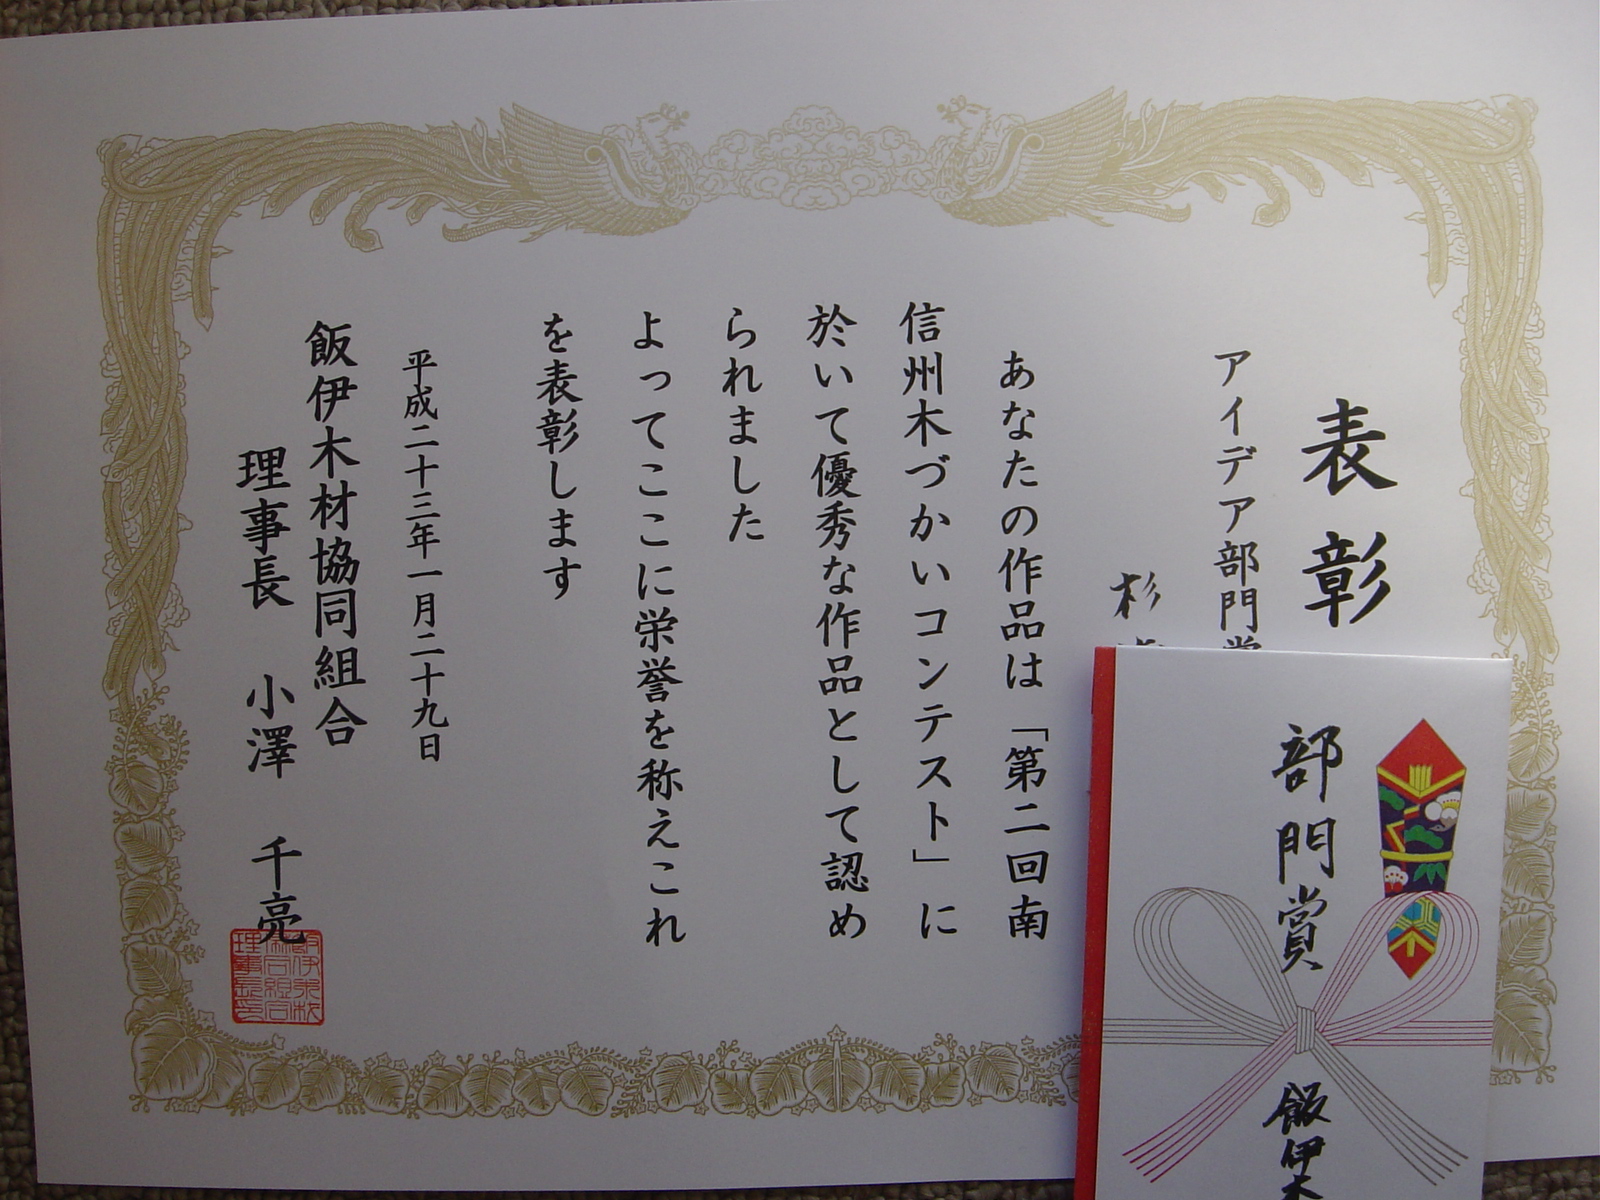 表彰
アイデア部門賞
杉
あなたの作品は「第二回南
信州木づかいコンテスト」に
於いて優秀な作品として認め
られました
よってここに栄誉を称えこれ
を表彰します
平成二十三年一月二十九日
飯伊木材協同組合
理事長 小澤 千亮
部門賞
飯伊木